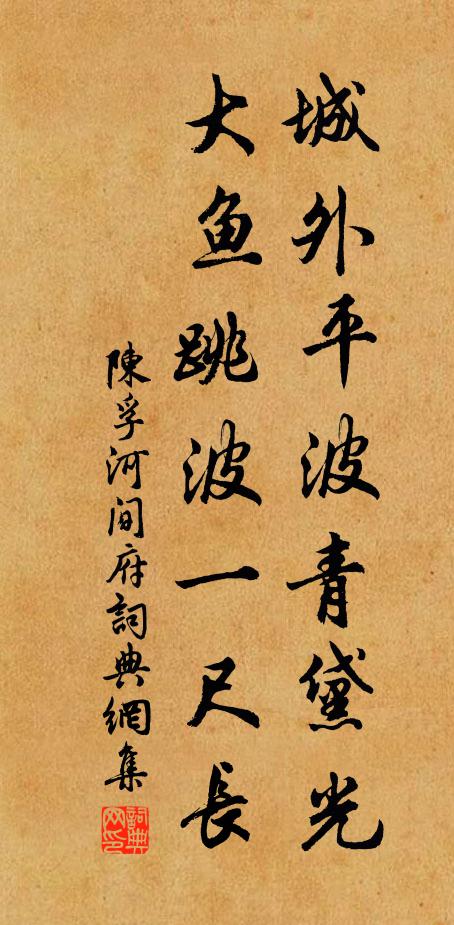 城外平波青黛光
大鱼跳波一尺長
陳孚河间府詞典網集
詞典网印